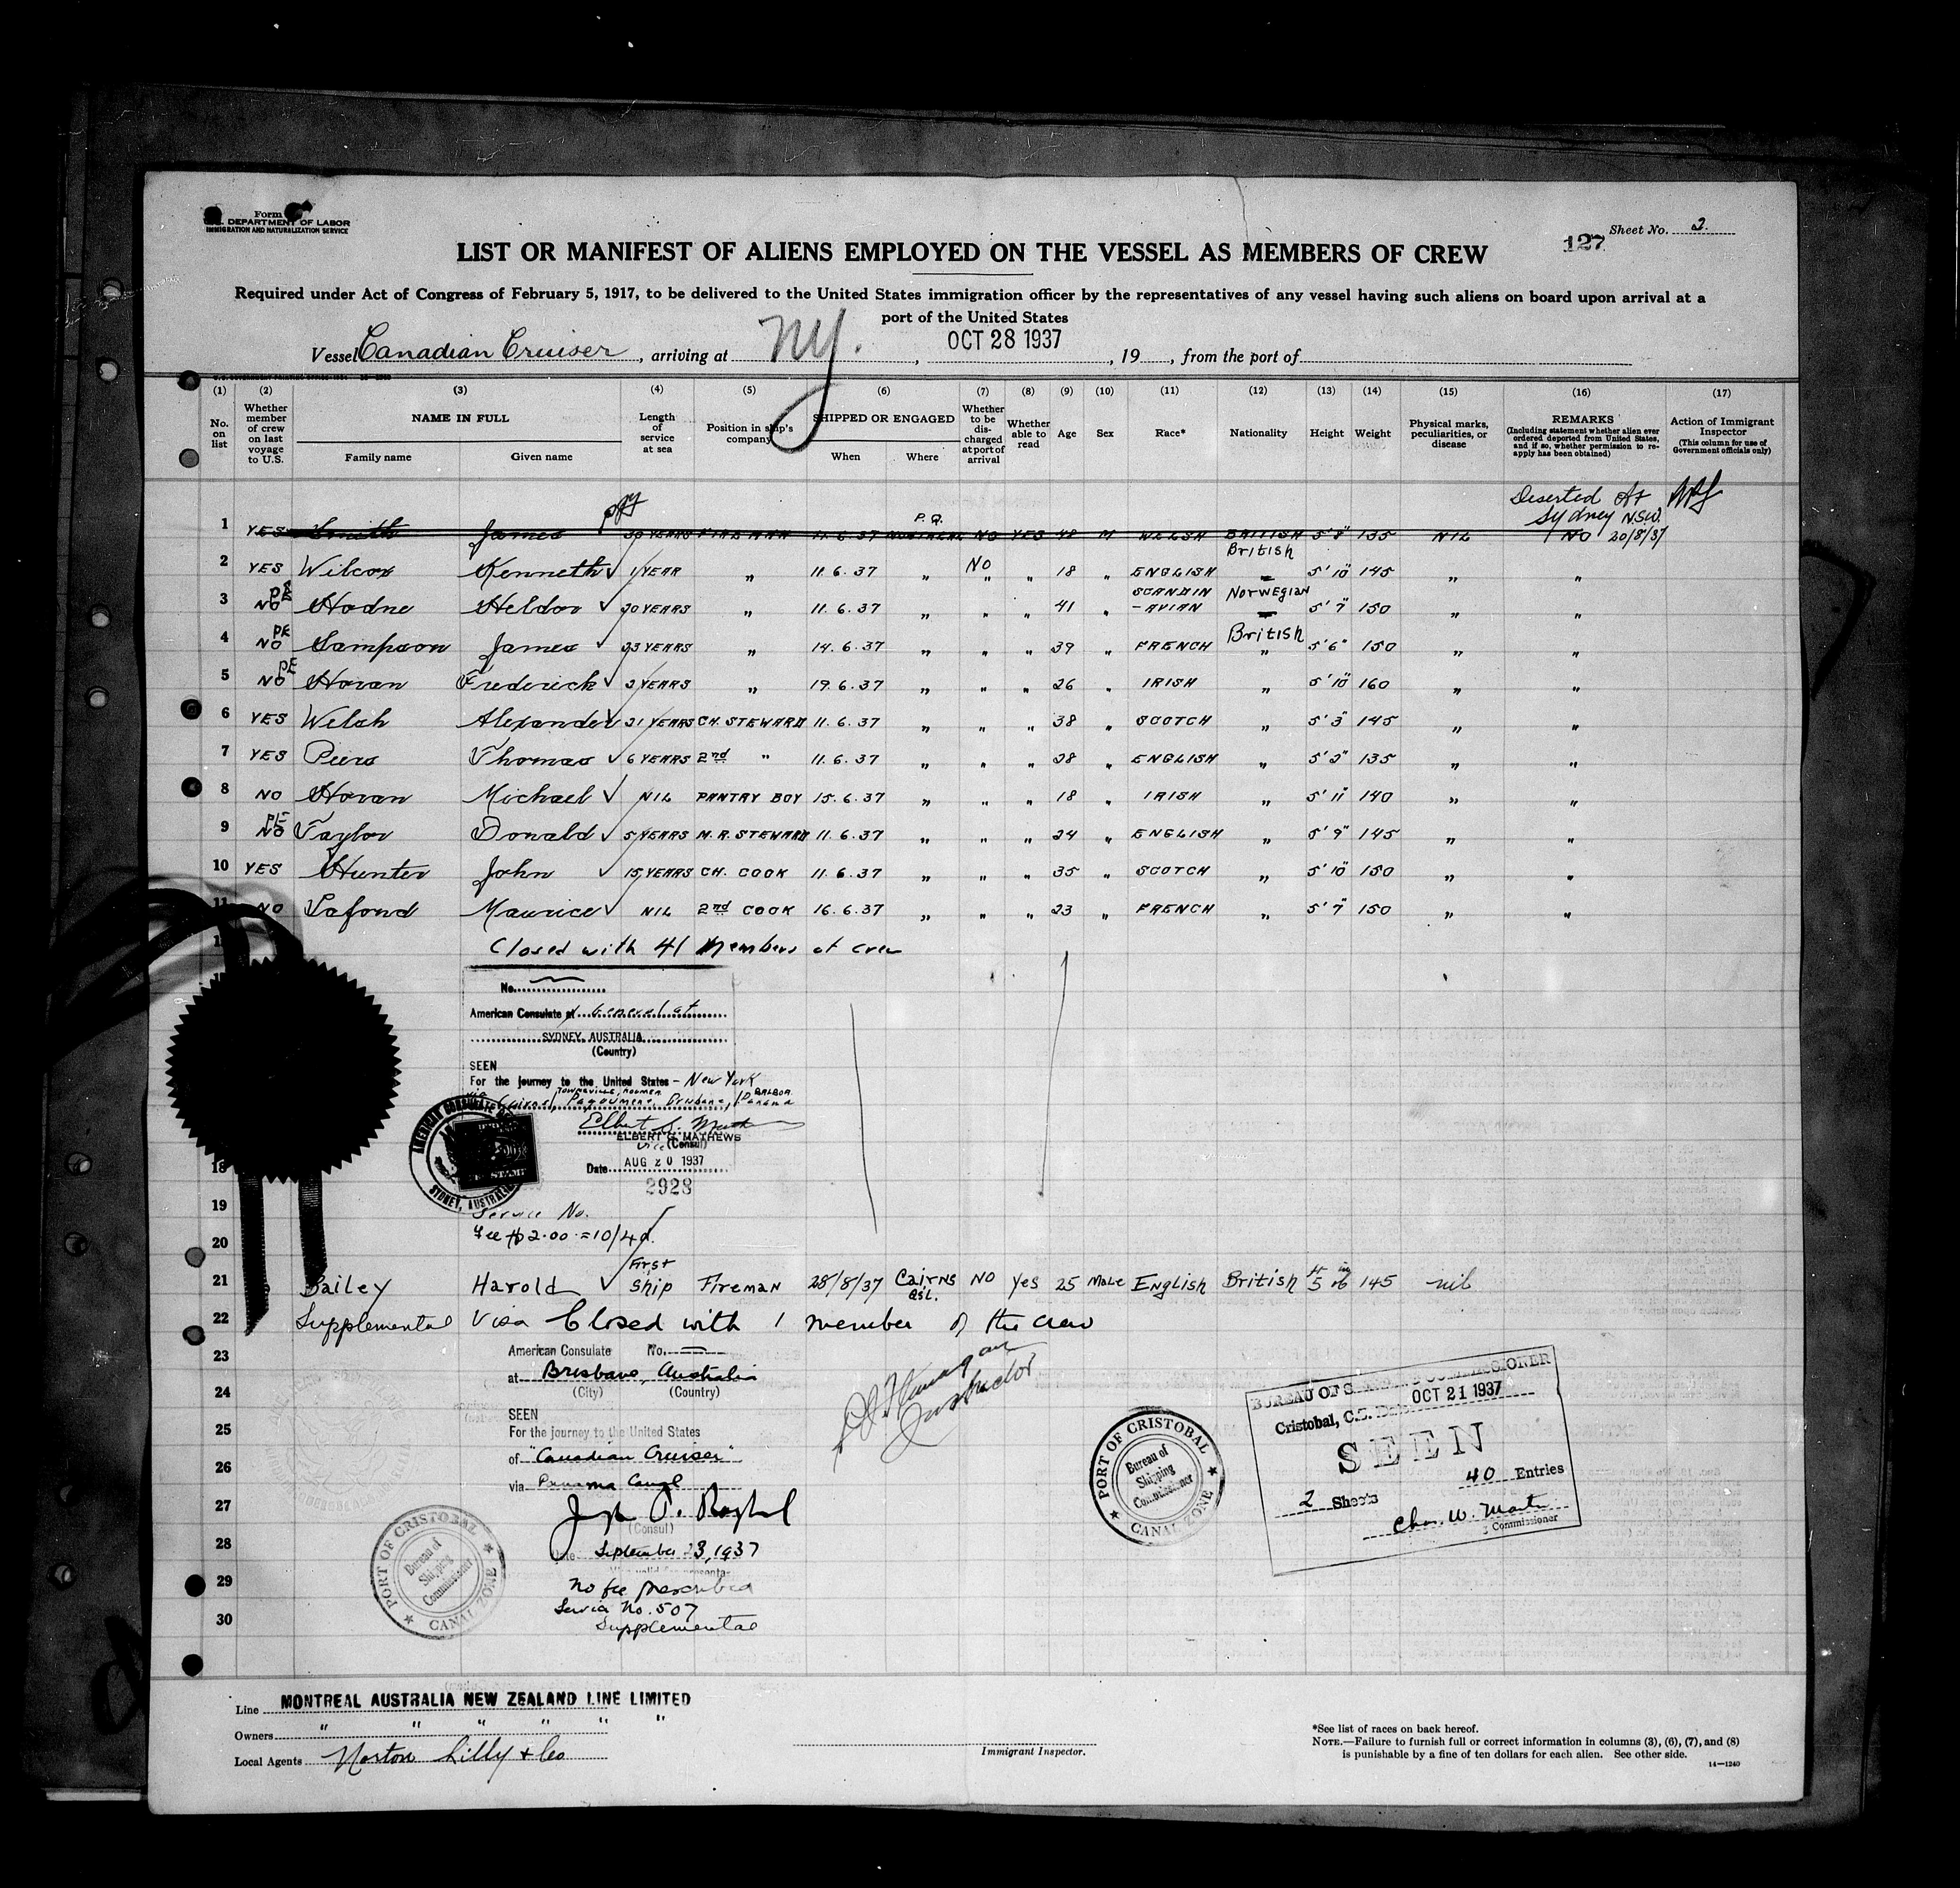 Form
U.S. DEPARTMENT OF LABOR
IMMIGRATION AND NATURALIZATION SERVICE
Sheet No. 2.
127
LIST OR MANIFEST OF ALIENS EMPLOYED ON THE VESSEL AS MEMBERS OF CREW
Required under Act of Congress of February 5, 1917, to be delivered to the United States immigration officer by the representatives of any vessel having such aliens on board upon arrival at a
port of the United States
Vessel Canadian Cruiser, arriving at NY., OCT 28 1937, 19, from the port of
(1) (2) (3) (4) (5) (6) (7) (8) (9) (10) (11) (12) (13) (14) (15) (16) (17)
No. on list
Whether member of crew on last voyage to U.S.
NAME IN FULL
Family name Given name
Length of service at sea
Position in ship's company
SHIPPED OR ENGAGED
When Where
Whether to be discharged at port of arrival
Whether able to read
Age
Sex
Race*
Nationality
Height
Weight
Physical marks, peculiarities, or disease
REMARKS
(Including statement whether alien ever ordered deported from United States, and if so, whether permission to re-apply has been obtained)
Action of Immigrant Inspector
(This column for use of Government officials only)
Deserted At
Sydney N.S.W.
20/8/37
1 YES Smith James 30 YEARS FIREMAN 11.6.37 MONTREAL P.Q. NO YES 48 M WELSH BRITISH 5'8" 135 NIL NO
2 YES Wilcox Kenneth ✓ 1 YEAR " 11.6.37 " NO " " 18 " ENGLISH British 5'10" 145 " "
3 NO Hodne Heldor ✓ 20 YEARS " 11.6.37 " " " 41 " SCANDIN-AVIAN Norwegian 5'7" 150 " "
4 NO PE Sampson James ✓ 23 YEARS " 14.6.37 " " " 39 " FRENCH British " 5'6" 150 " "
5 NO PE Horan Frederick ✓ 2 YEARS " 19.6.37 " " " 26 " IRISH " 5'10" 160 " "
6 YES Welch Alexander ✓ 21 YEARS CH. STEWARD 11.6.37 " " " 38 " SCOTCH " 5'3" 145 " "
7 YES Piers Thomas ✓ 6 YEARS 2nd " 11.6.37 " " " 28 " ENGLISH " 5'2" 135 " "
8 NO Horan Michael ✓ NIL PANTRY BOY 15.6.37 " " " 18 " IRISH " 5'11" 140 " "
9 NO PE Taylor Donald ✓ 5 YEARS M.R. STEWARD 11.6.37 " " " 24 " ENGLISH " 5'9" 145 " "
10 YES Hunter John ✓ 15 YEARS CH. COOK 11.6.37 " " " 35 " SCOTCH " 5'10" 150 " "
11 NO Lafond Maurice ✓ NIL 2nd COOK 16.6.37 " " " 23 " FRENCH " 5'7" 150 " "
Closed with 41 Members of crew
No.
American Consulate General at
SYDNEY, AUSTRALIA
(Country)
SEEN
For the journey to the United States - New York
via Cairns, Townsville, Brisbane, Balboa Panama
ELBERT G. MATHEWS
Vice (Consul)
Date AUG 20 1937
2928
AMERICAN CONSULATE
SYDNEY, AUSTRALIA
18
19
Service No.
20
Fee $2.00 = 10/4d.
21 Bailey Harold ✓ First ship Fireman 28/8/37 Cairns Qsl. NO Yes 25 Male English British 5 ft 6 in 145 nil
22 Supplemental Visa Closed with 1 member of the crew
23
American Consulate No.
24
at Brisbane, Australia
(City) (Country)
25
SEEN
For the journey to the United States
26
of "Canadian Cruiser"
via Panama Canal
27
(Consul)
28
Date September 23, 1937
29
No fee prescribed
Service No. 507
30
Supplemental
PORT OF CRISTOBAL
Bureau of Shipping Commissioner
CANAL ZONE
PORT OF CRISTOBAL
Bureau of Shipping Commissioner
CANAL ZONE
OCT 21 1937
Cristobal, C.Z.
SEEN
40 Entries
2 Sheets
Commissioner
Line MONTREAL AUSTRALIA NEW ZEALAND LINE LIMITED
Owners " " " " " "
Local Agents Norton Lilly & Co
Immigrant Inspector.
*See list of races on back hereof.
NOTE.—Failure to furnish full or correct information in columns (3), (6), (7), and (8)
is punishable by a fine of ten dollars for each alien. See other side.
14—1240